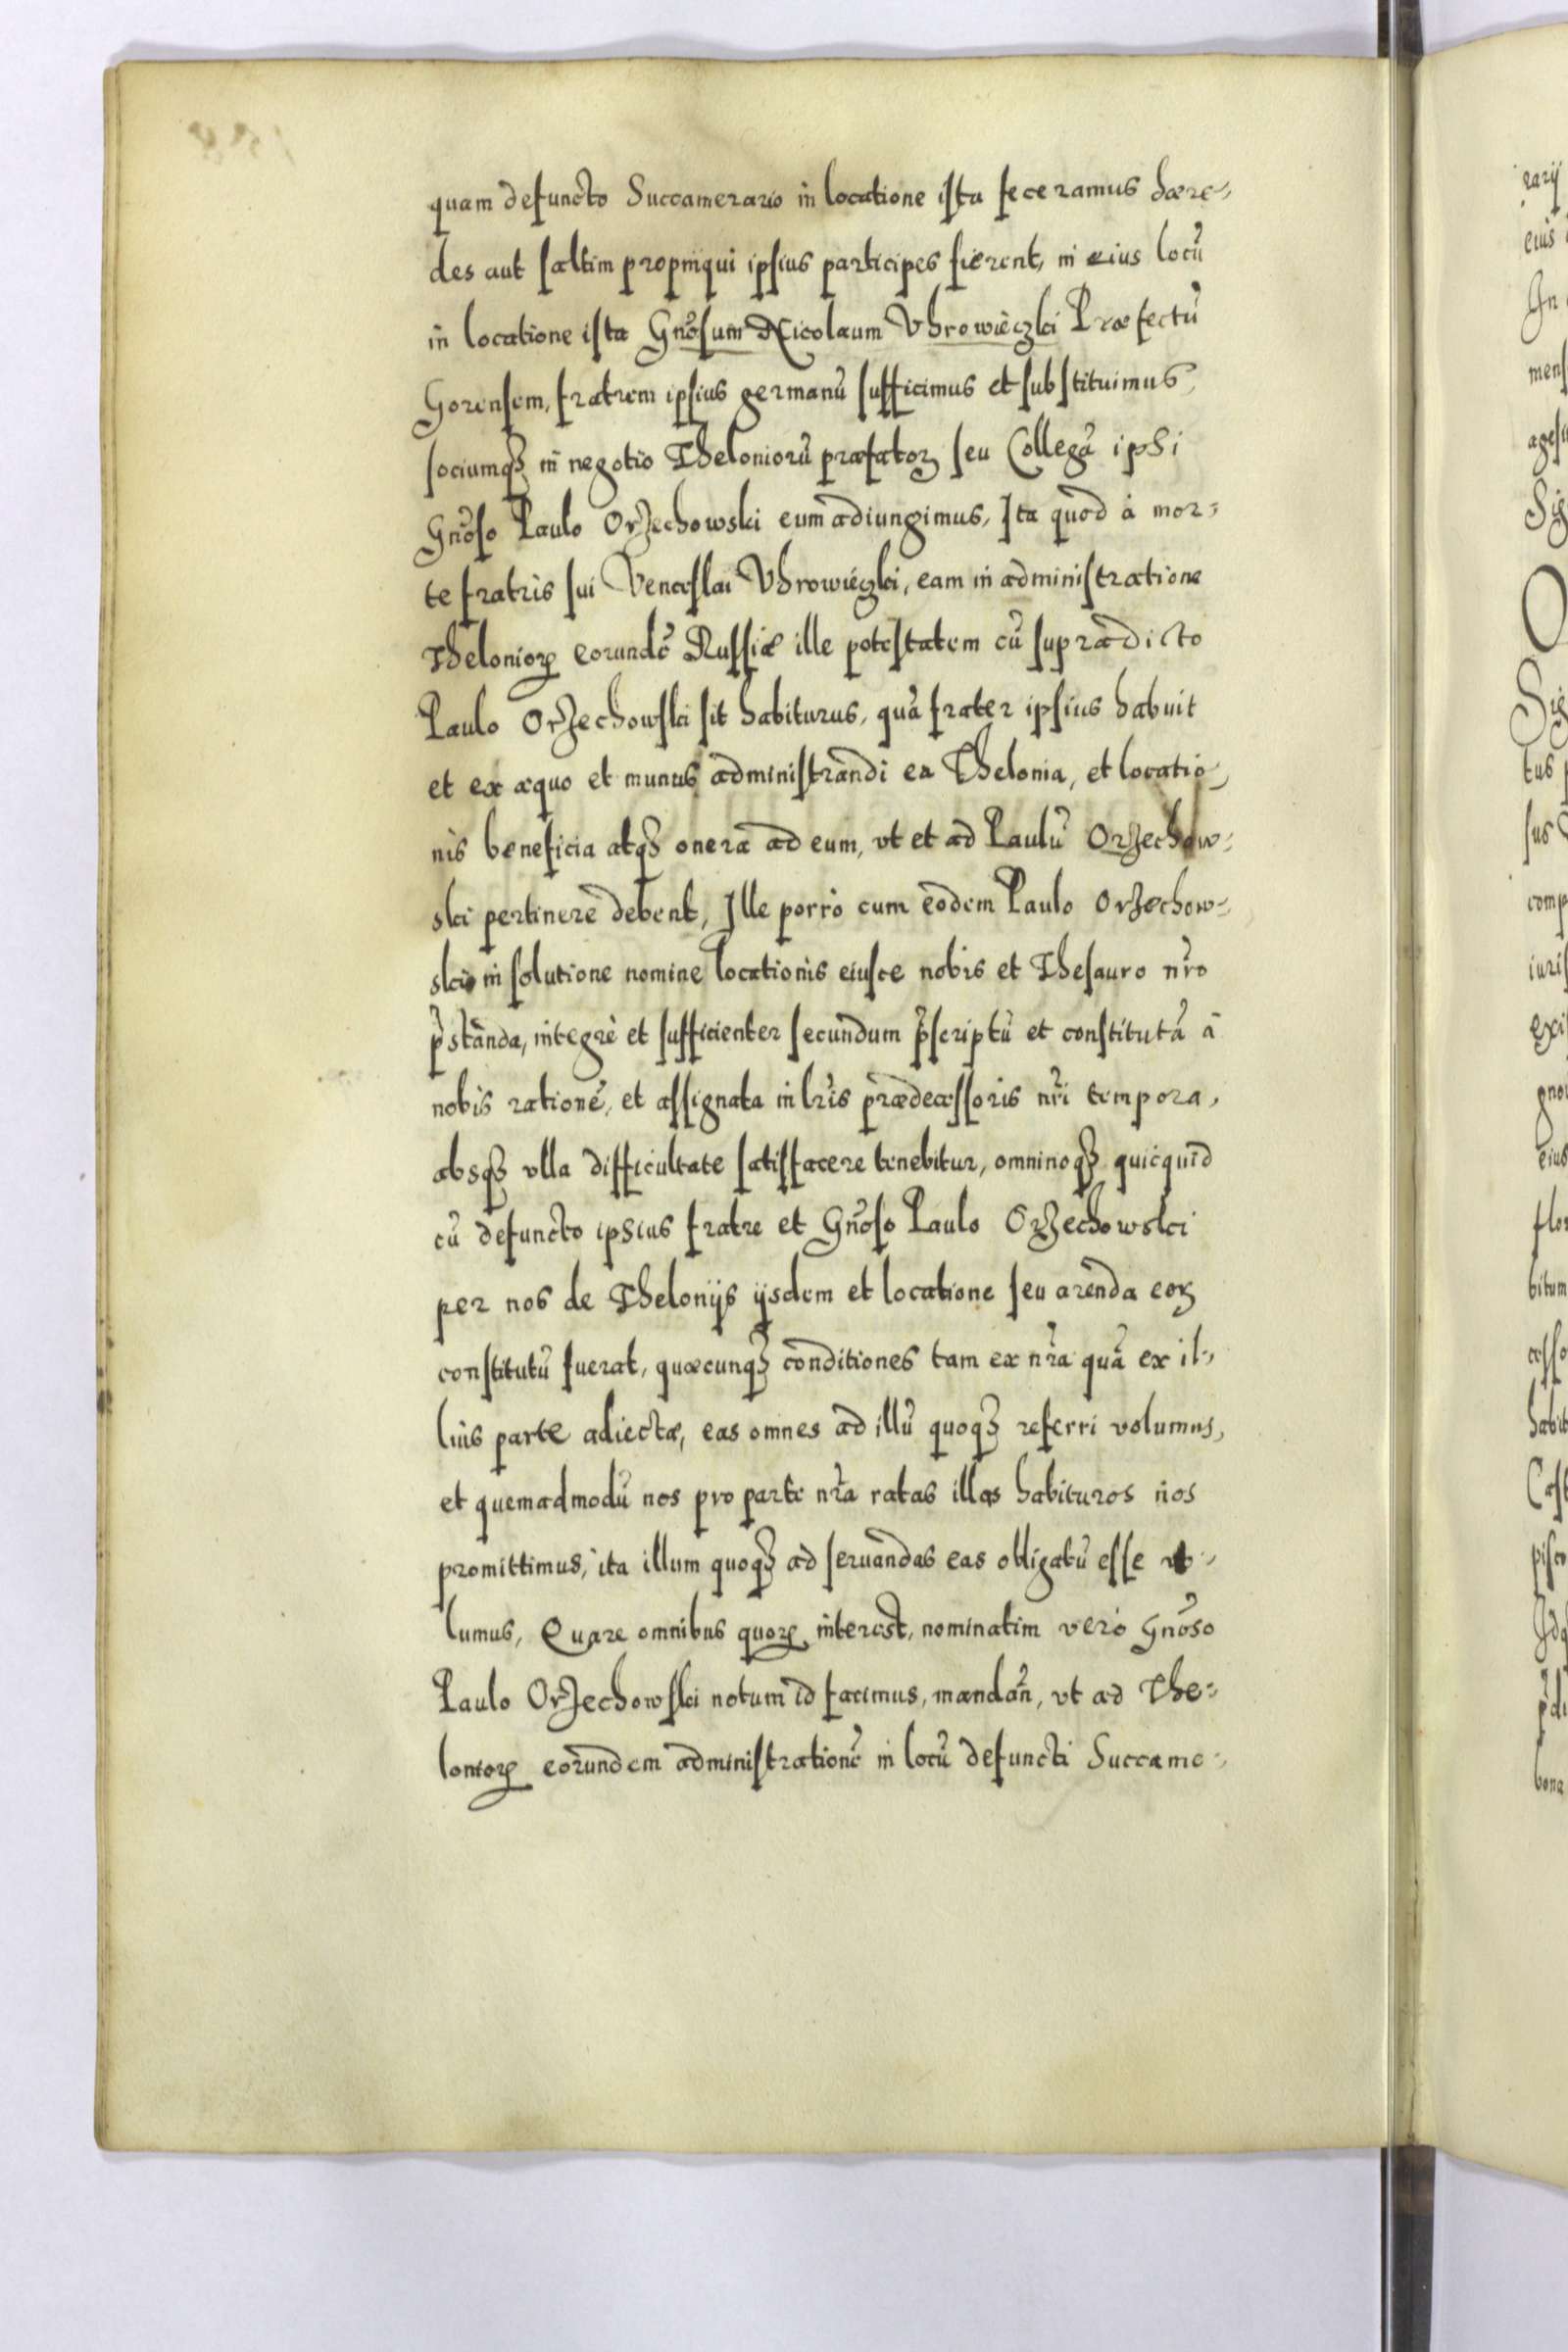 quam defuncto Succamerario in locatione ista feceramus hære-
des aut saltim propinqui ipsius participes fierent, in eius locũ
in locatione ista Gnõsum Nicolaum Vhrowieczki Præfectũ
Gorensem, fratrem ipsius germanũ sufficimus et substituimus,
sociumqꝫ in negotio Theloniorũ præfatoꝝ seu Collegã ipsi
Gnõso Paulo Orzechowski eum adiungimus, Ita quod à mor-
te fratris sui Venceslai Vhrowieczki, eam in administratione
Thelonioꝝ eorundẽ Russiæ ille potestatem cũ supradicto
Paulo Orzechowski sit habiturus, quã frater ipsius habuit
et ex æquo et munus administrandi ea Thelonia, et locatio-
nis beneficia atqꝫ onera ad eum, vt et ad Paulũ Orzechow-
ski pertinere debent, Ille porrò cum eodem Paulo Orzechow-
ski in solutione nomine locationis eiusce nobis et Thesauro nr̃o
p̃standa, integrè et sufficienter secundum p̃scriptũ et constitutã à
nobis rationẽ, et assignata in lr̃is prædecessoris nr̃i tempora,
absqꝫ vlla difficultate satisfacere tenebitur, omninoqꝫ quicquid
cũ defuncto ipsius fratre et Gnõso Paulo Orzechowski
per nos de Thelonijs ijsdem et locatione seu arenda eoꝝ
constitutũ fuerat, quæcunqꝫ conditiones tam ex nr̃a quã ex il-
lius parte adiectæ, eas omnes ad illũ quoqꝫ referri volumus,
et quemadmodũ nos pro parte nr̃a ratas illas habituros nos
promittimus, ita illum quoqꝫ ad seruandas eas obligatũ esse vo-
lumus, Quare omnibus quoꝝ interest, nominatim verò Gnõso
Paulo Orzechowski notum id facimus, mandañ, vt ad The-
lonioꝝ eorundem administrationẽ in locũ defuncti Succame-